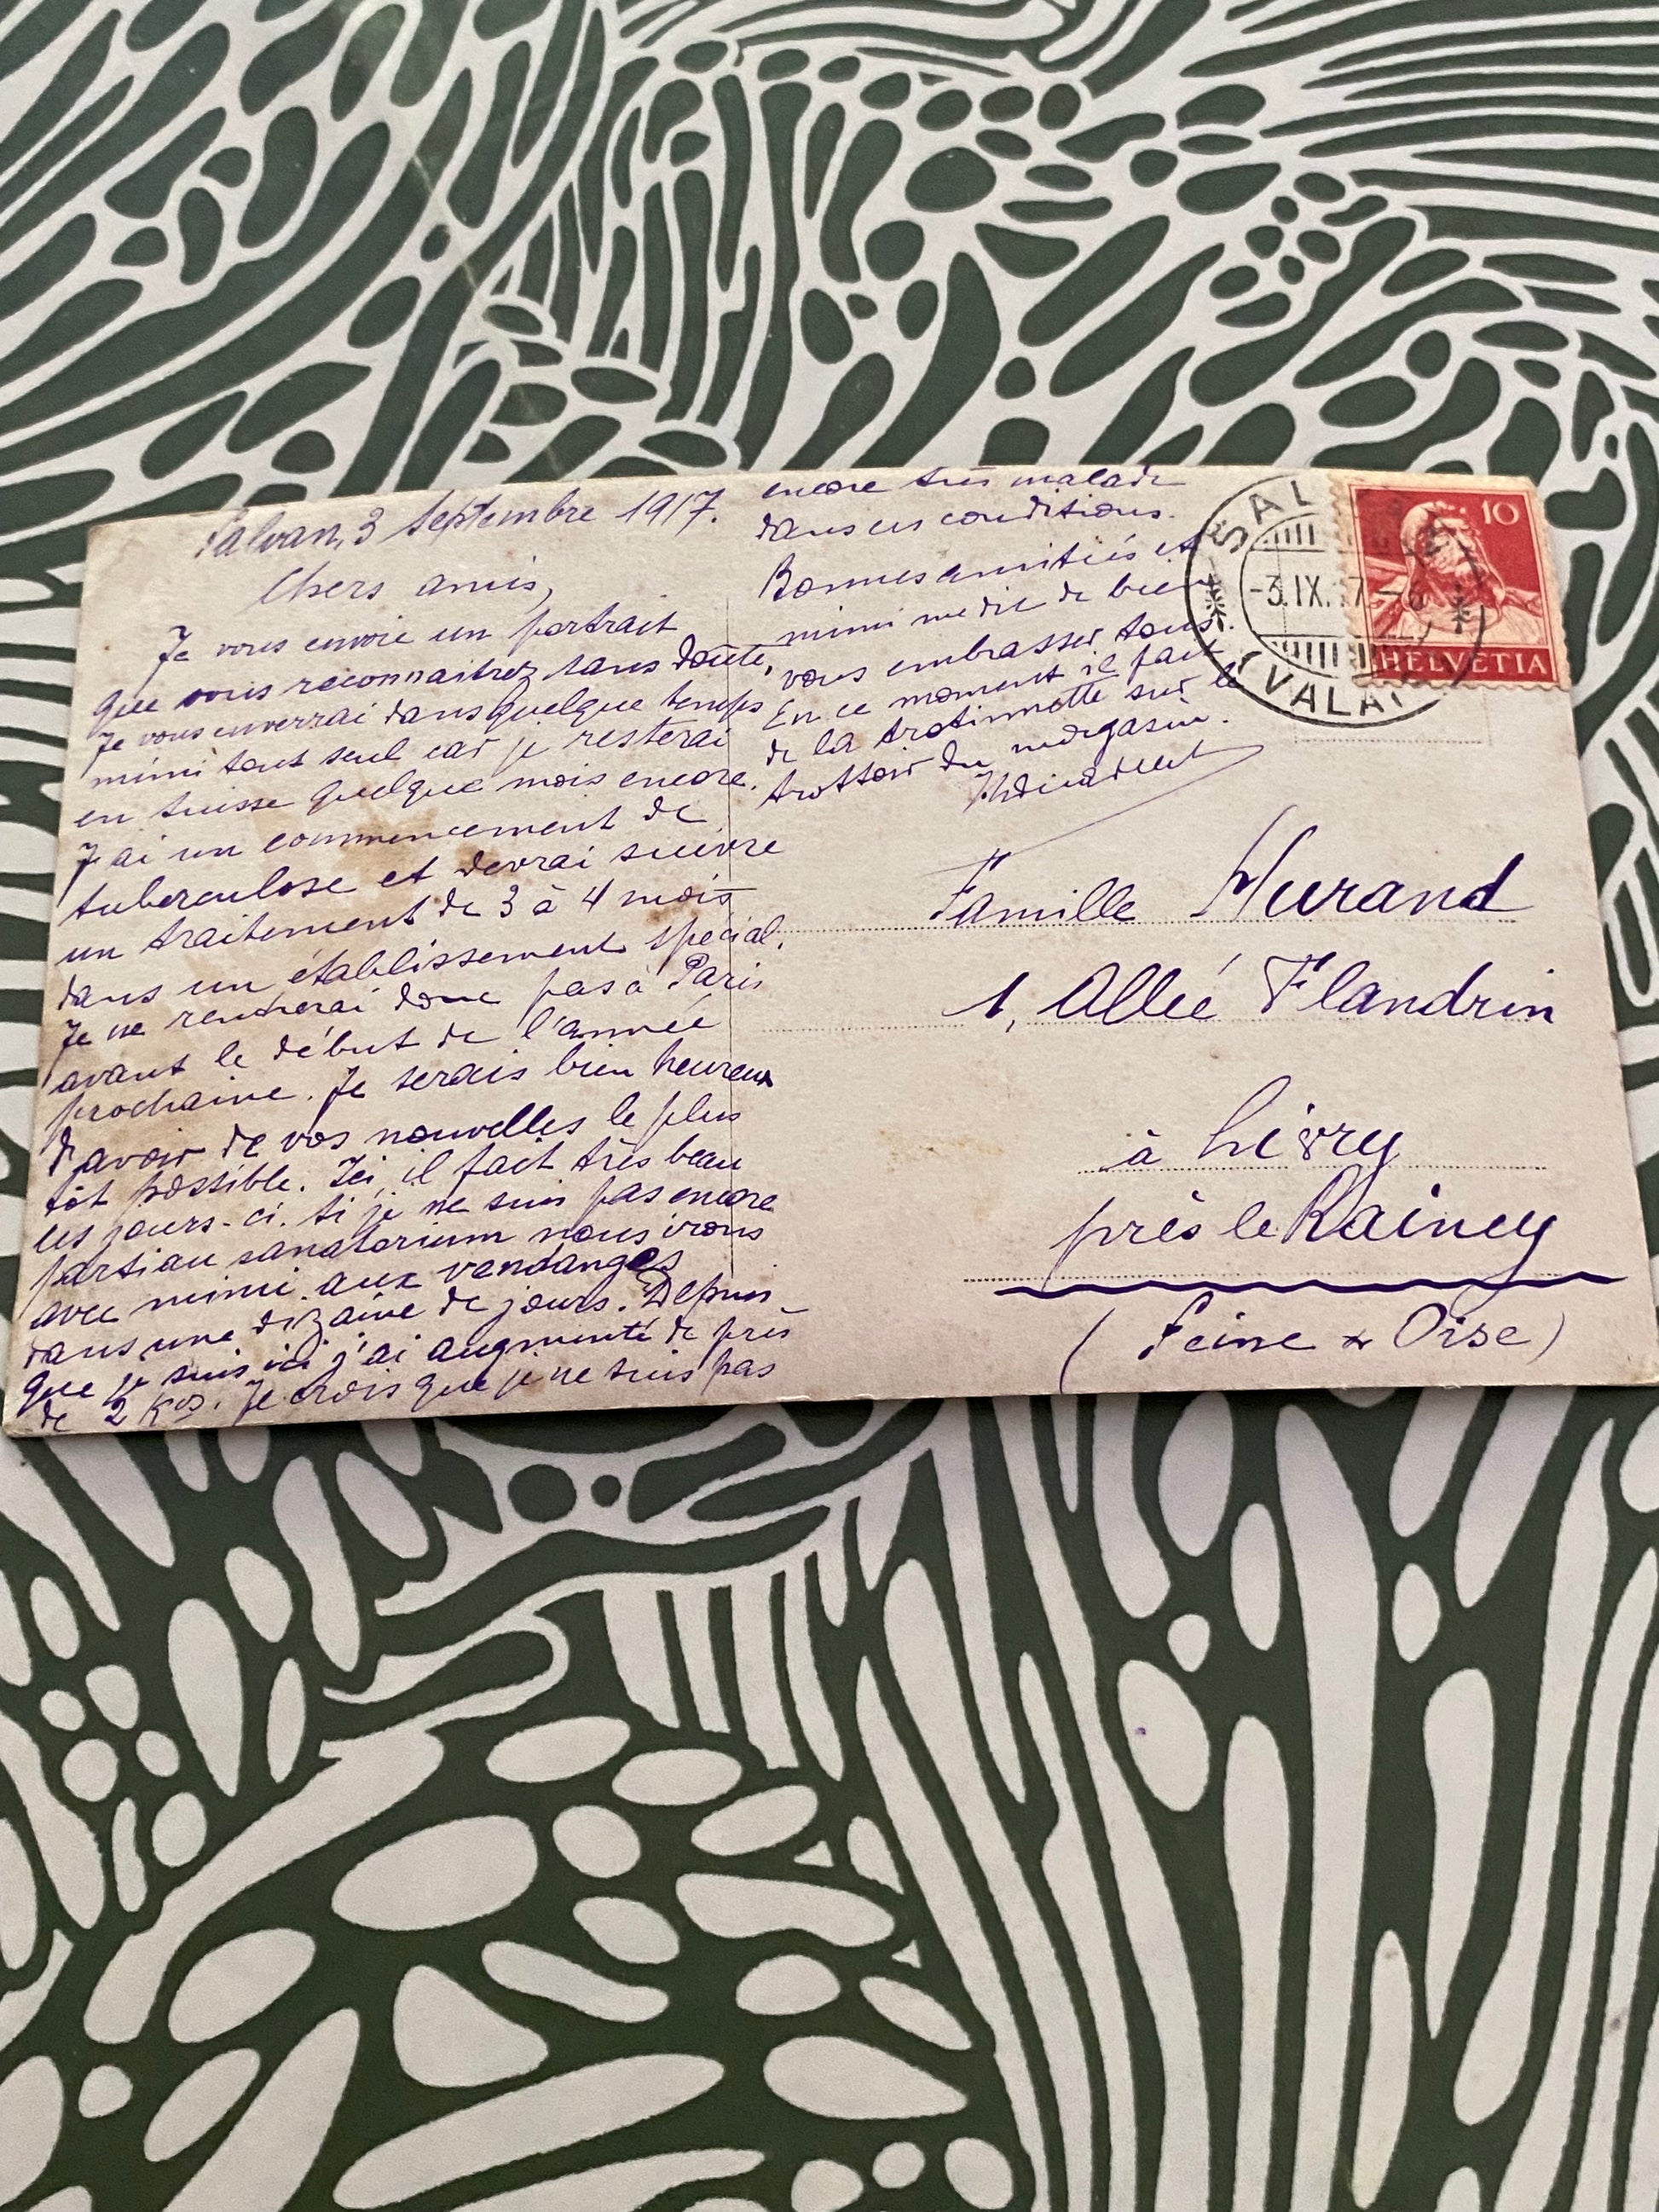 Salvan, 3 Septembre 1917.
Chers amis,
Je vous envoie un portrait
que vous reconnaitrez sans doute,
Je vous enverrai dans quelque temps
mimi tout seul car je resterai
en Suisse quelque mois encore.
J'ai un commencement de
tuberculose et devrai suivre
un traitement de 3 à 4 mois
dans un établissement spécial.
Je ne rentrerai donc pas à Paris
avant le début de l'année
prochaine. Je serais bien heureux
d'avoir de vos nouvelles le plus
tôt possible. Ici, il fait très beau
ces jours-ci. Si je ne suis pas encore
parti au sanatorium nous irons
avec mimi aux vendanges
dans une dizaine de jours. Depuis
que je suis ici j'ai augmenté de près
de 2 Kos. Je crois que je ne suis pas
encore très malade
dans ces conditions.
Bonnes amitiés et
mimi me dit de bien
vous embrasser tous.
En ce moment il fait
de la trotinnette sur le
trottoir du magasin.
Famille Murand
1, Allée Flandrin
à Livry
près le Rainey
(Seine & Oise)
SAL
-3.IX.17-6
(VALAI
10
HELVETIA